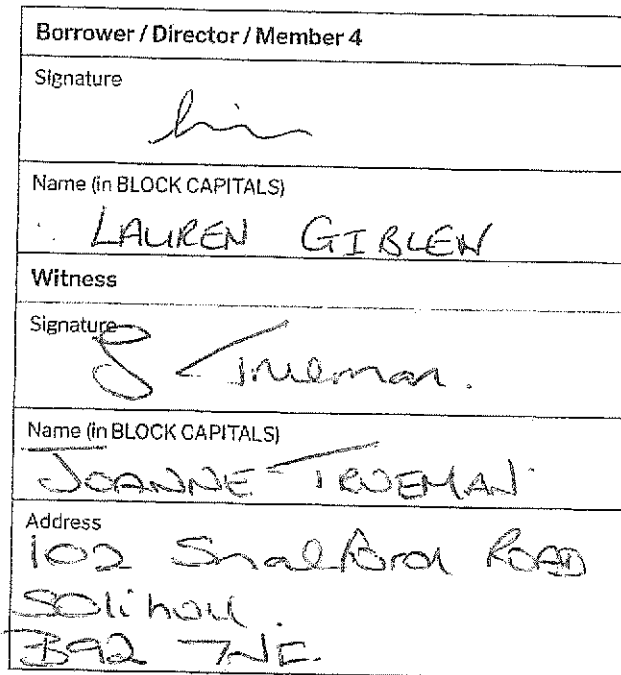 Borrower / Director / Member 4
Signature
Name (in BLOCK CAPITALS)
LAUREN GIBLEN
Witness
Signature
J Trueman.
Name (in BLOCK CAPITALS)
JOANNE TRUEMAN
Address
102 Shalford ROAD
Solihull.
B92 7NE